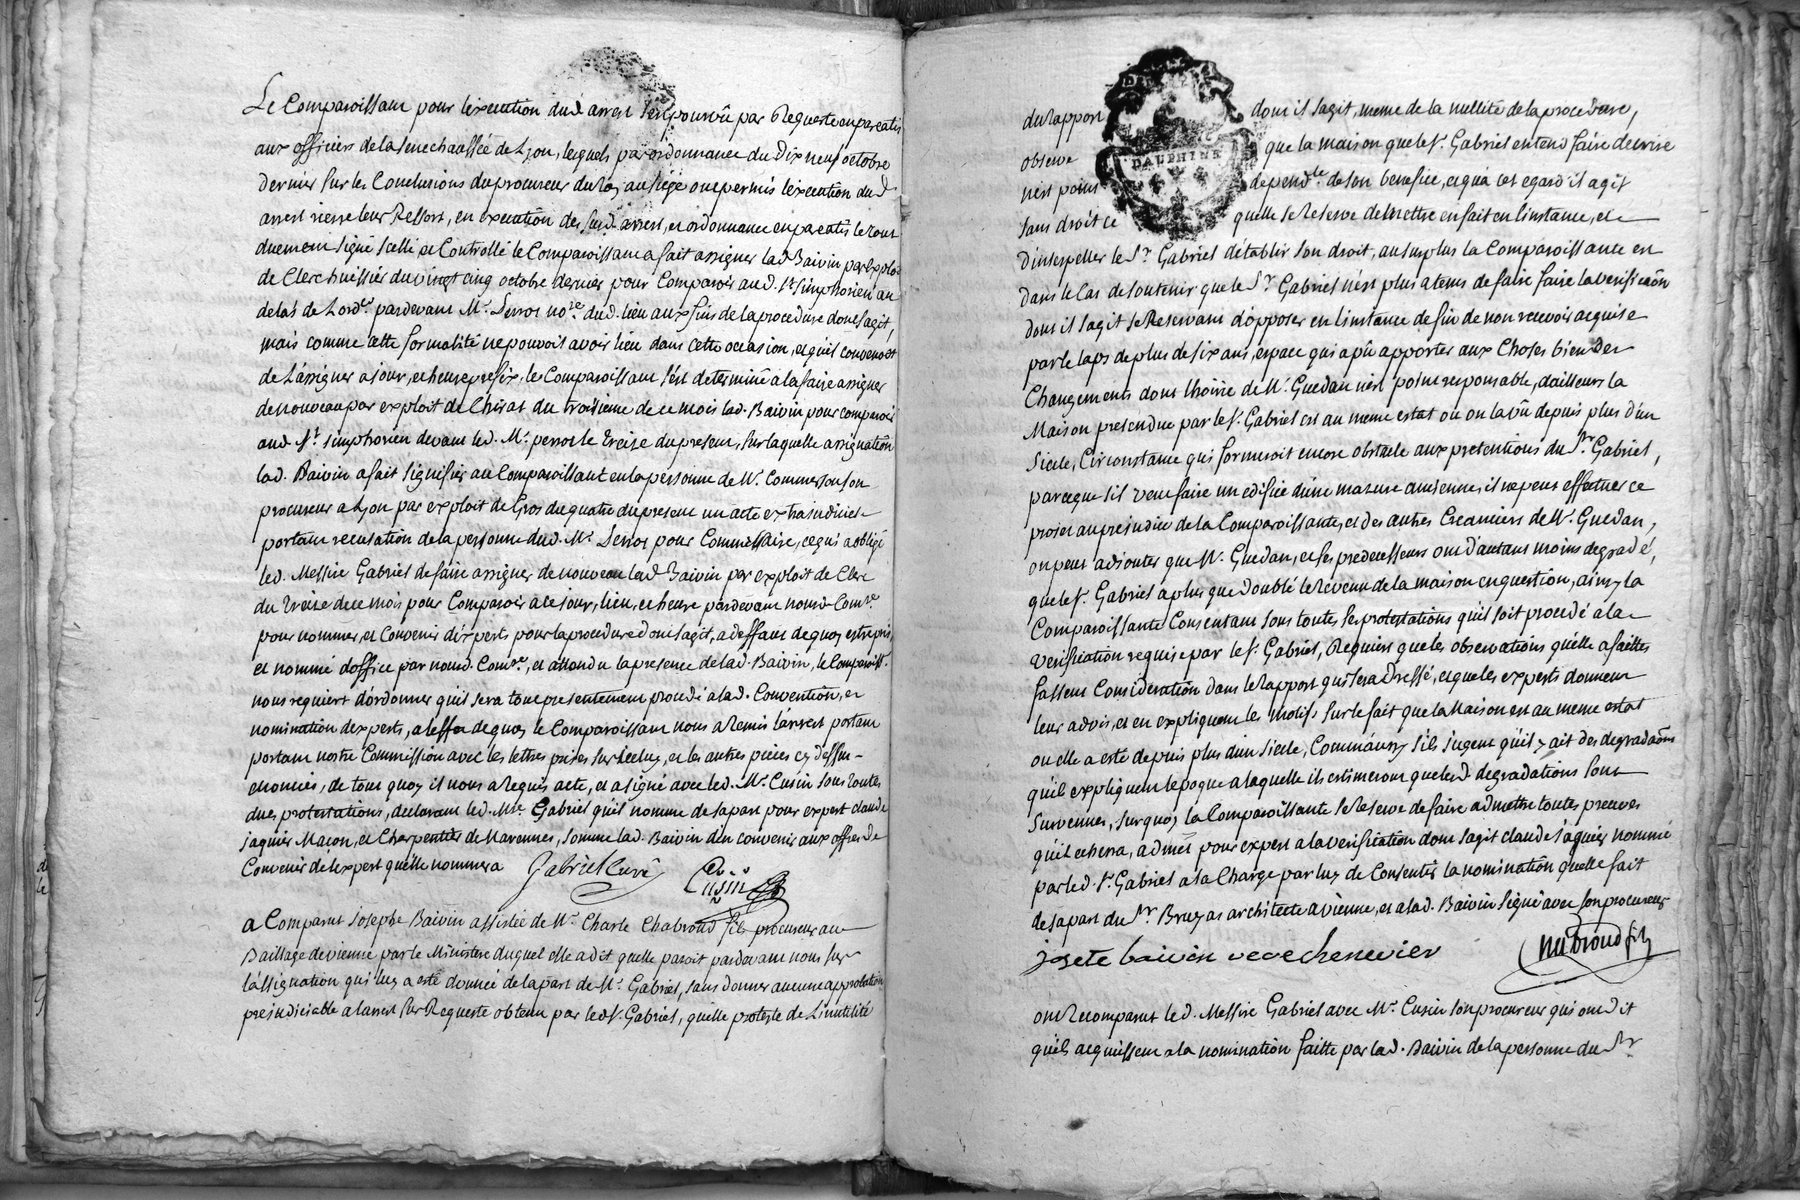 Le Comparoissant pour lexecution dud arrest sest pourvû par Requeste en pareatis
aux officiers de la senechaussée de Lyon, lesquels par ordonnance du dix neuf octobre
dernier sur les Conclusions du procureur du Roy au siege ont permis lexecution dud
arrest riere leur Ressort, en execution desd. arrest, et ordonnance en pareatis le tout
duement signé scellé et Controllé le Comparoissant a fait assigner lad Baivin par exploit
de Clerc huissier du vingt cinq octobre dernier pour Comparoir aud. St simphorien au
delas de Lordre pardevant Mr. Perrot nore. dud. lieu aux fins de la procedure dont sagit,
mais comme cette formalité ne pouvoit avoir lieu dans cette occasion, et quil convenoit
de Lassigner a jour, et heure prefix, le Comparoissant sest determiné a la faire assigner
de nouveau par exploit de Chirat du troisieme de ce mois lad. Baivin pour comparoir
aud. St. simphorien devant led. Mr. perrot le treize du present, sur laquelle assignation
lad. Baivin a fait signifier au Comparoissant en la personne de Mr. Commerson son
procureur a Lyon par exploit de Gros du quatre du present un acte extrajudiciel
portant recusation de la personne dud. Mr. Perrot pour Commissaire, ce qui a obligé
led. Messire Gabriel de faire assigner de nouveau lad Baivin par exploit de Clerc
du treize de ce mois pour Comparoir a ce jour, lieu, et heure pardevant nousd. Comre.
pour nommer, et Convenir dexperts pour la procedure dont sagit, a deffaut de quoy estre pris,
et nommé doffice par nousd. Comre, et attendu la presence de lad. Baivin, le Comparoisst.
nous requiert dordonner quil sera tout presentement procedé a lad. Convention, et
nomination dexperts, a leffet de quoy le Comparoissant nous a Remis larrest portant
portant notre Commission avec les lettres prises sur icelluy, et les autres pieces cy dessus
enoncées, de tout quoy il nous a Requis acte, et a signé avec led. Mr. Cusin sous toutes
dues protestations, declarant led. Mre Gabriel quil nomme de sa part pour expert claude
jaquier Macon, et Charpentier de Marennes, somme lad. Baivin den convenir aux offres de
Convenir de lexpert quelle nommera Gabriel Curé Cusin
a Comparut Josephe Baivin assistée de Mr. Charle Chabroud fils procureur au
Baillage de vienne par le Ministere duquel elle a dit quelle paroit pardevant nous sur
lassignation qui luy a esté donnée de la part de Mr. Gabriel, sans donner aucune approbation
prejudiciable a larrest sur Requeste obtenu par led Sr. Gabriel, quelle proteste de Linutilité
DAUPHINE
du Rapport dont il sagit, meme de la nullité de la procedure,
observe que la maison que le Sr. Gabriel entend faire decrire
nest point dependte. de son benefice, et qua cet egard il agit
sans droit ce quelle se Reserve de Mettre en fait en linstance, et
dinterpeller le Sr. Gabriel detablir son droit, au surplus la Comparoissante en
dans le Cas de soutenir que le Sr Gabriel nest plus a tems de faire faire la verification
dont il sagit se Reservant dopposer en linstance de fin de non recevoir acquise
par le laps de plus de six ans, espace qui a pû apporter aux Choses bien des
Changements dont lhoirie de Mr. Guedan nest point responsable, dailleurs la
Maison pretendue par le Sr. Gabriel est au meme estat ou on la vû depuis plus dun
siecle, Circonstance qui formeroit encore obstacle aux pretentions du Sr Gabriel,
parceque sil veut faire un edifice dune mazure ancienne, il ne peut effectuer ce
projet au prejudice de la Comparoissante, et des autres Creanciers de Mr. Guedan,
on peut adjouter que Mr. Guedan, et ses predecesseurs ont dautant moins degradé,
que le Sr. Gabriel a plus que doublé le Revenu de la maison en question, ainsy la
Comparoissante Consentant sous toutes ses protestations quil soit procedé a la
Verification requise par le Sr. Gabriel, Requiert que les observations quelle a faittes
fassent Consideration dans le rapport qui sera dressé, et que les experts donnent
leur advis, et en expliquent les motifs sur le fait que la Maison est au meme estat
ou elle a esté depuis plus dun siecle, Comm'aussy sils jugent quil y ait des degradaõns
quils expliquent lepoque a laquelle ils estimeront que lesd. degradations sont
Survenues, surquoy la Comparoissante se Reserve de faire admettre toutes preuves
quil echerra, admet pour expert a la verification dont sagit claude jaquier nommé
par led. Sr. Gabriel a la Charge par luy de Consentir la nomination quelle fait
de sa part du Sr Bruyas architecte a vienne, et a lad. Baivin signé avec son procureur
josete baivin veve chenevier Chabroud fils
ont Recomparut led. Messire Gabriel avec Mr. Cusin son procureur qui ont dit
quils acquiessent a la nomination faitte par lad. Baivin de la personne du Sr